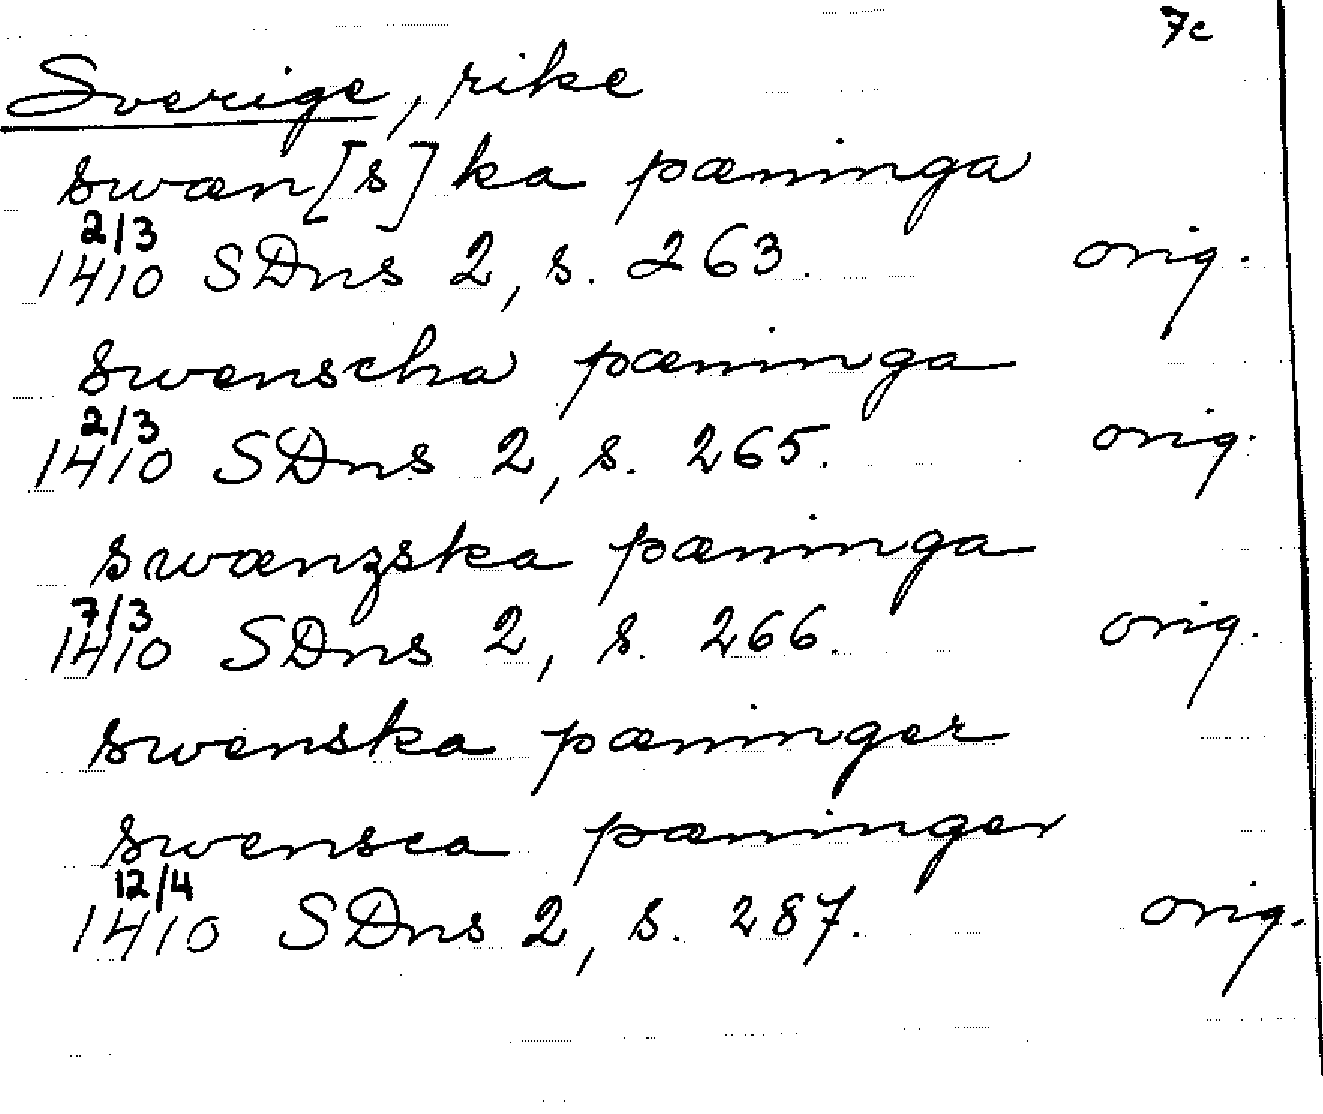 7c
Sverige, rike
swæn[s]ka pæninga
2/3
1410 SDns 2, s. 263. orig.
swenscha pæninga
2/3
1410 SDns 2, s. 265. orig.
swænzska pæninga
7/3
1410 SDns 2, s. 266. orig.
swenska pæninger
swensca pæninger
12/4
1410 SDns 2, s. 287. orig.